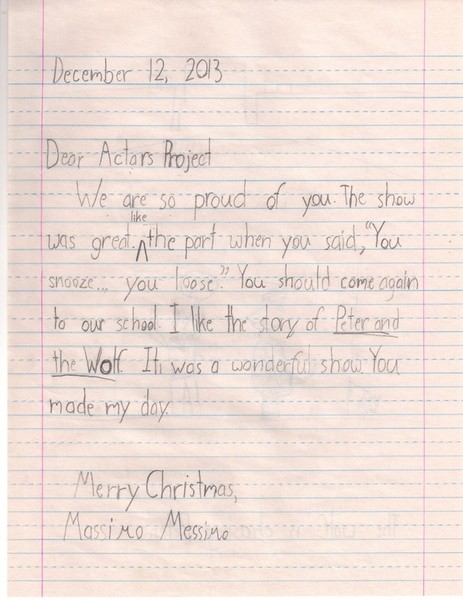 December 12, 2013
Dear Actors Project
We are so proud of you. The show
like
was great. the part when you said, "You
snooze... you loose." You should come again
to our school. I like the story of Peter and
the Wolf. It was a wonderful show. You
made my day.
Merry Christmas,
Massimo Messimo